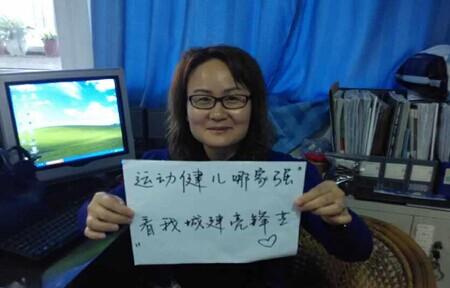 运动健儿哪家强"
"看我城建亮锋芒